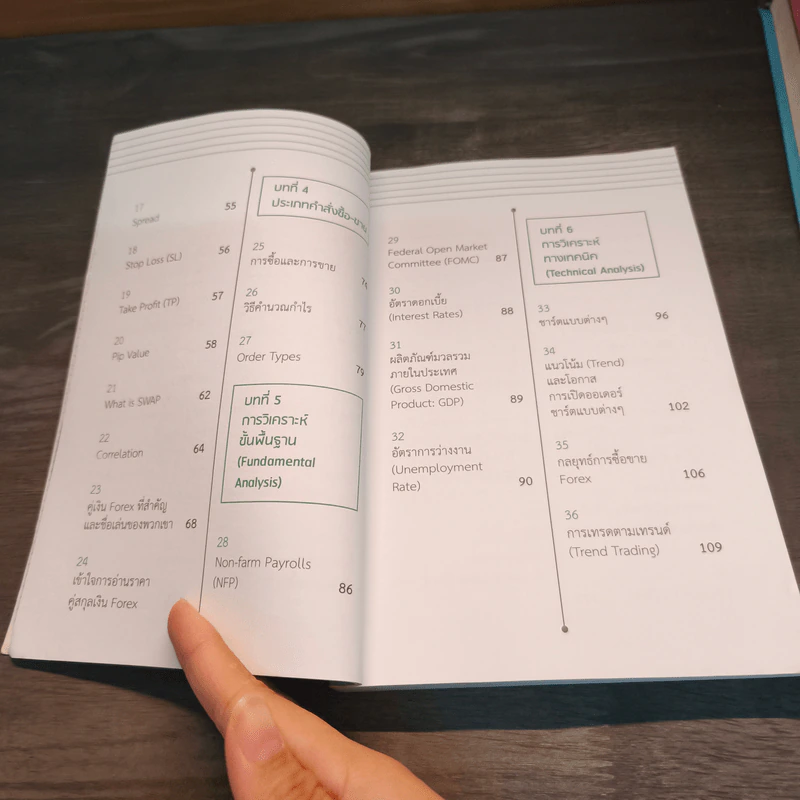 17
Spread 55
18
Stop Loss (SL) 56
19
Take Profit (TP) 57
20
Pip Value 58
21
What is SWAP 62
22
Correlation 64
23
คู่เงิน Forex ที่สำคัญ
และชื่อเล่นของพวกเขา 68
24
เข้าใจการอ่านราคา
คู่สกุลเงิน Forex
บทที่ 4
ประเภทคำสั่งซื้อ-ขาย
25
การซื้อและการขาย
26
วิธีคำนวณกำไร
27
Order Types 79
บทที่ 5
การวิเคราะห์
ขั้นพื้นฐาน
(Fundamental
Analysis)
28
Non-farm Payrolls
(NFP) 86
29
Federal Open Market
Committee (FOMC) 87
30
อัตราดอกเบี้ย
(Interest Rates) 88
31
ผลิตภัณฑ์มวลรวม
ภายในประเทศ
(Gross Domestic
Product: GDP) 89
32
อัตราการว่างงาน
(Unemployment
Rate) 90
บทที่ 6
การวิเคราะห์
ทางเทคนิค
(Technical Analysis)
33
ชาร์ตแบบต่างๆ 96
34
แนวโน้ม (Trend)
และโอกาส
การเปิดออเดอร์
ชาร์ตแบบต่างๆ 102
35
กลยุทธ์การซื้อขาย
Forex 106
36
การเทรดตามเทรนด์
(Trend Trading) 109